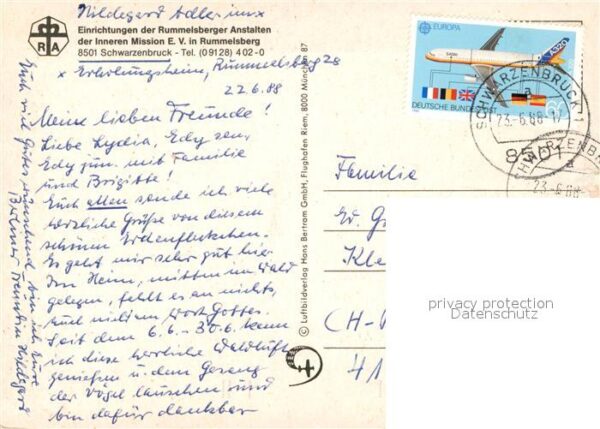 Hildegard Adler
Einrichtungen der Rummelsberger Anstalten
der Inneren Mission E. V. in Rummelsberg
8501 Schwarzenbruck · Tel. (09128) 402-0
R A
x Erholungsheim, Rummelsberg 28
22.6.88
Meine lieben Freunde!
Liebe Lydia, Edy sen,
Edy jun. mit Familie
und Brigitte!
Euch allen sende ich viele
herzliche Grüße von diesem
schönen Erdenfleckchen.
Es geht mir sehr gut hier.
Im Heim, mitten im Wald
gelegen, fehlt es an nichts,
auch nicht am Wort Gottes.
Seit dem 6.6.-30.6. kann
ich diese herrliche Waldluft
genießen u. dem Gesang
der Vögel lauschen und
bin dafür dankbar
Euch viel Gutes wünschend bin ich Eure
Hildegard
© Luftbildverlag Hans Bertram GmbH, Flughafen Riem, 8000 München 87
EUROPA
A320
DEUTSCHE BUNDESPOST
60
SCHWARZENBRUCK 1
a
23.-6.88-17
8501
SCHWARZENBR
23.-6.88-
Familie
Ed. G
Kle
CH-
41
privacy protection
Datenschutz